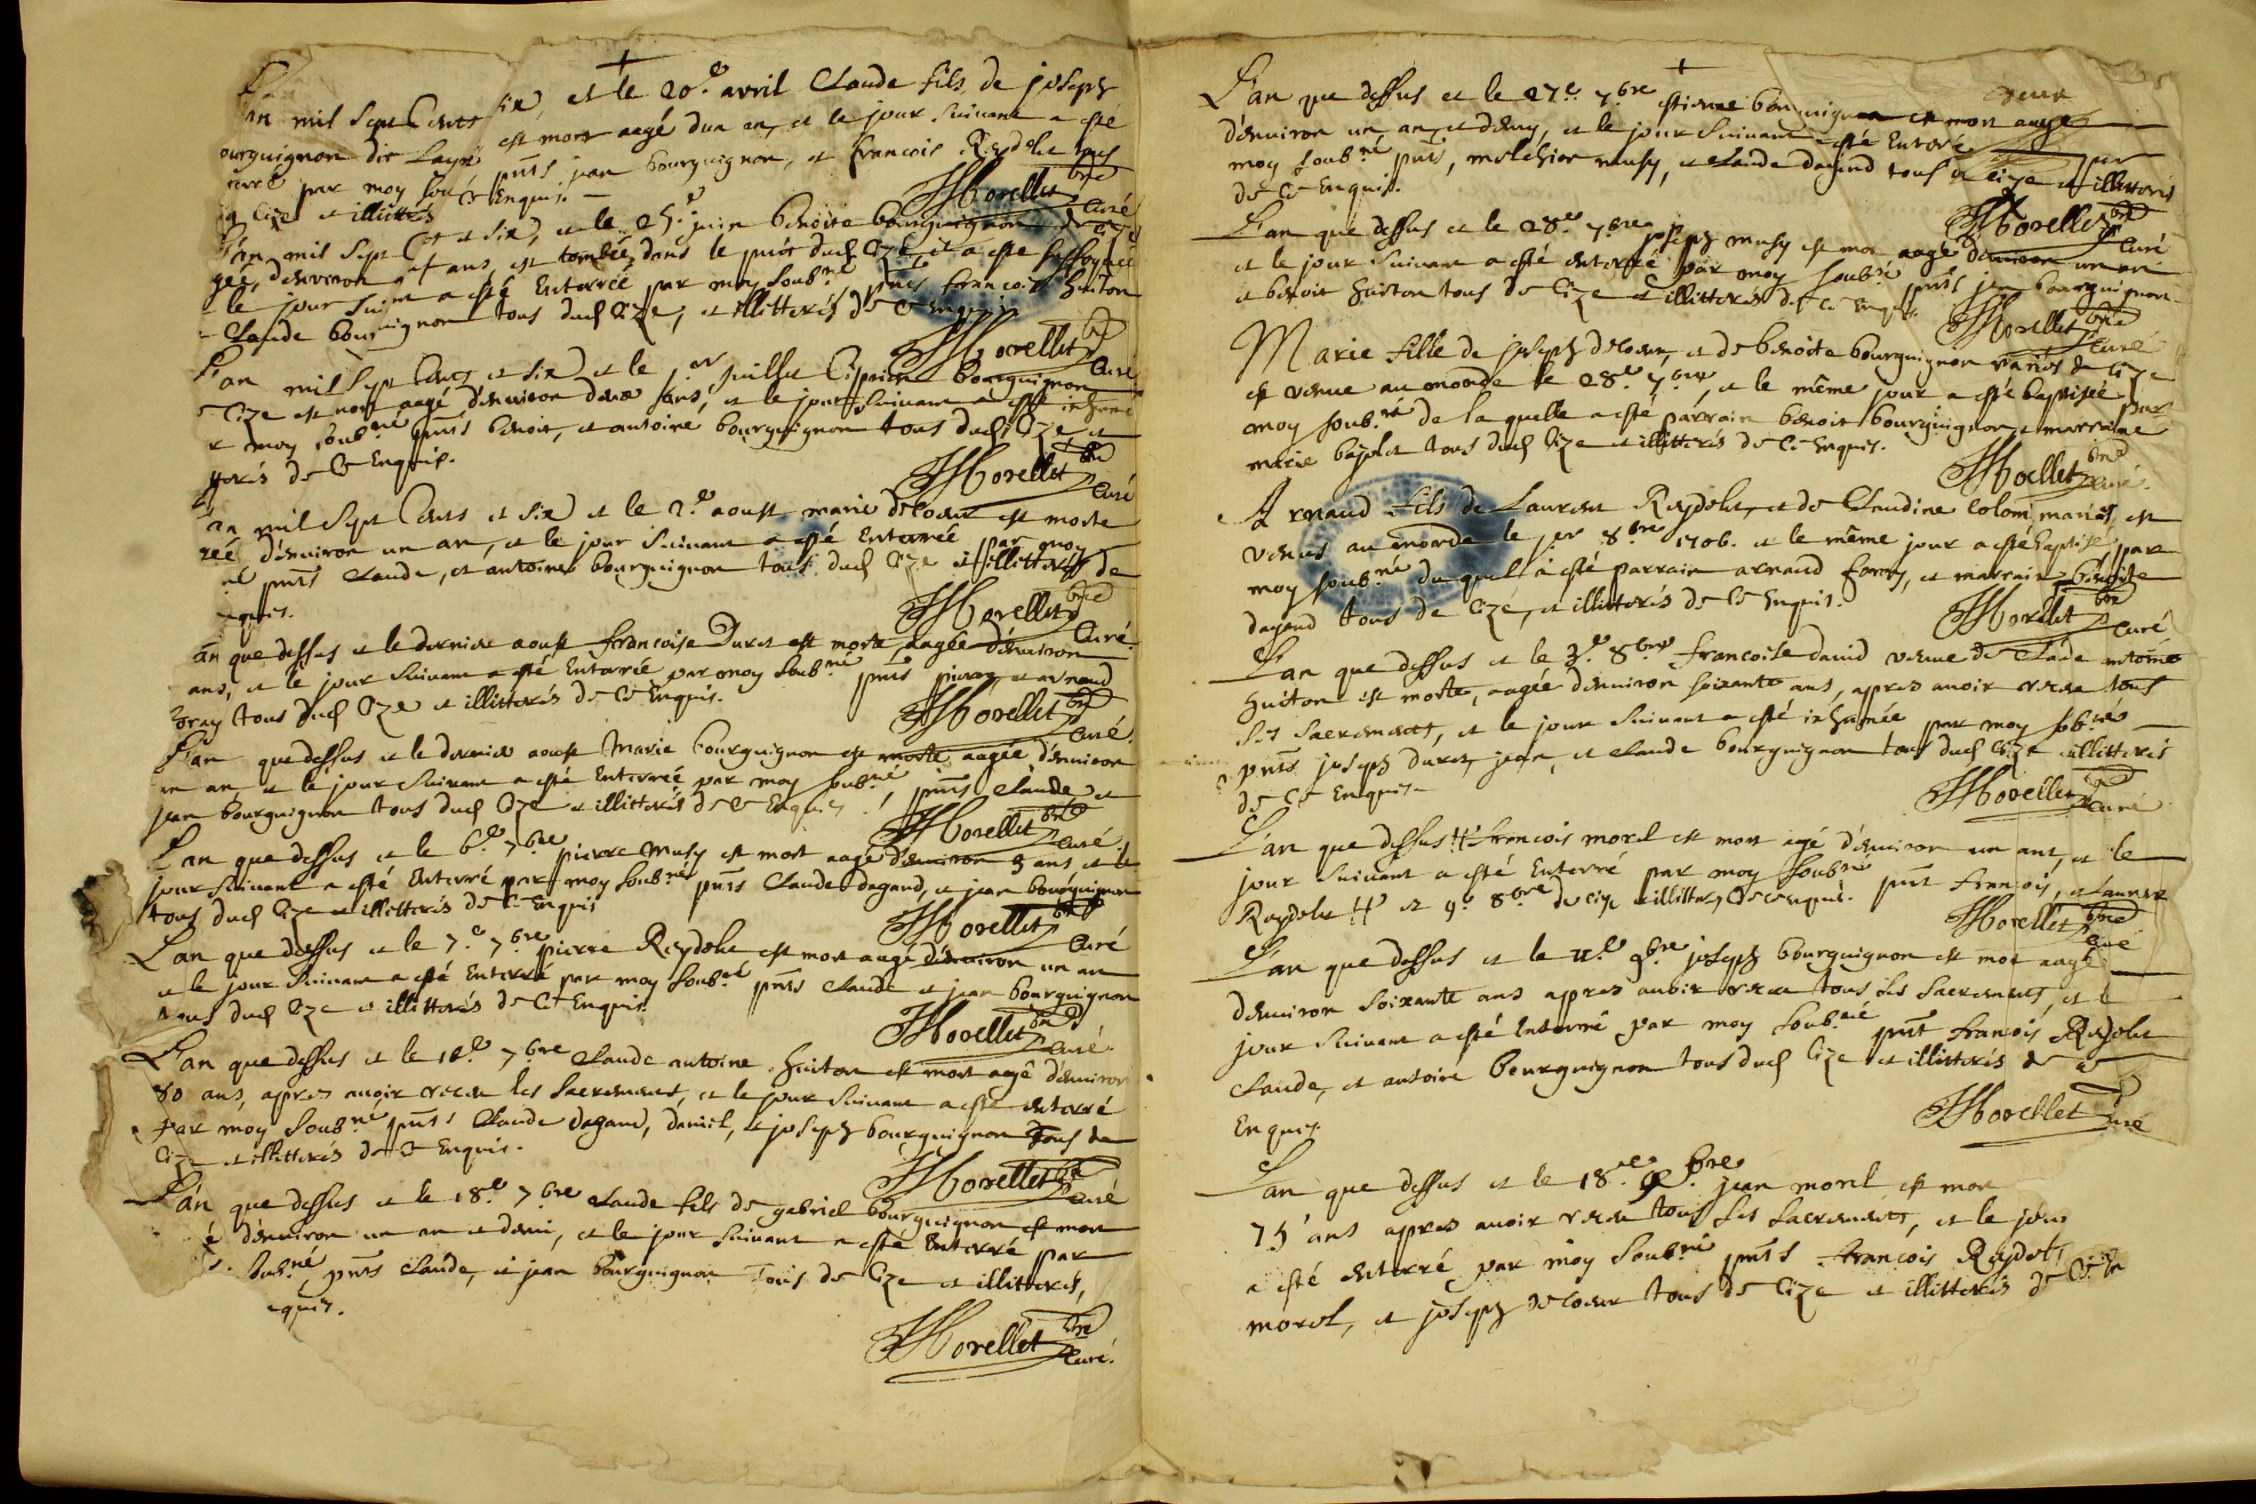 L'an mil Sept Cents six, et le 20.e avril Claude fils de joseph
bourguignon dit est mort aagé dun an, et le jour suivant a esté
par moy pnts jean bourguignon, et francois Reydelet tous
Cize et illitterés Enquis.
Morellet bre Curé
L'an mil Sept et six, et le 25.e juin benoite bourguignon de Cize
agée d'environ ans, est tombée dans le puis dud Cize, et a esté suffoquée
le jour a esté Enterrée par moy soub.né pnts francois huiton
Claude bourguignon tous dud Cize, et illitterés de Ce Enquis
Morellet bre Curé
L'an mil Sept Cents et six et le 1er juillet Ciprien bourguignon
Cize est mort aagé d'environ deux ans, et le jour suivant a esté inhumé
moy soub.né pnts benoit, et antoine bourguignon tous dud Cize et
de Ce Enquis.
Morellet bre Curé
an mil Sept Cents et six et le 2.e aoust marie decoeur est morte
d'environ un an, et le jour suivant a esté Enterrée par moy
né pnts Claude, et antoine bourguignon tous dud Cize et illitterés de
Morellet bre Curé
an que dessus et le dernier aoust francoise Duret est morte aagée d'environ
ans, et le jour suivant a esté Enterrée par moy soub.né pnts et arnaud
tous dud Cize et illitterés de Ce Enquis.
Morellet bre Curé
L'an que dessus et le dernier aoust Marie bourguignon est morte aagée d'environ
un an et le jour suivant a esté Enterrée par moy soub.né, pnts Claude et
jean bourguignon tous dud Cize et illitterés de Ce Enquis.
Morellet bre Curé
L'an que dessus et le 6.e 7bre pierre Musy est mort aagé d'environ 9 ans et le
jour suivant a esté Enterré par moy soub.né pnts Claude dagand, et jean bourguignon
tous dud Cize et illitterés de Ce Enquis
Morellet bre Curé
L'an que dessus et le 7.e 7bre pierre Reydelet est mort aagé d'environ un an
et le jour suivant a esté Enterré par moy soub.né pnts Claude et jean bourguignon
tous dud Cize et illitterés de Ce Enquis
Morellet bre Curé
L'an que dessus et le 7bre Claude antoine huiton est mort aagé d'environ
80 ans, apres avoir receu les sacrements, et le jour suivant a esté enterré
par moy soub.né pnts Claude dagand, daniel, et joseph bourguignon tous de
Cize et illitterés de Ce Enquis.
Morellet bre Curé
L'an que dessus et le 18.e 7bre Claude fils de gabriel bourguignon est mort
d'environ un an et demi, et le jour suivant a esté Enterré par
soub.né, pnts Claude, et jean bourguignon tous de Cize et illitterés,
Morellet bre Curé.
L'an que dessus et le 27.e 7bre estienne bourguignon est mort aagé
d'environ un an, et demy, et le jour suivant a esté Enterré par
moy soub.né pnts, melchior musy, et Claude dagand tous de Cize et illitterés
de Ce Enquis.
Morellet bre Curé
L'an que dessus et le 28.e 7bre joseph musy est mort aagé d'environ un an
et le jour suivant a esté enterré par moy soub.né pnts jean bourguignon
et benoit huiton tous de Cize et illitterés de Ce Enquis.
Morellet bre Curé
Marie fille de joseph decoeur, et de benoite bourguignon mariés de Cize
est venue au monde le 28.e 7bre, et le même jour a esté baptisée par
moy soub.né de la quelle a esté parrain benoit bourguignon, et marraine
marie bajolet tous dud Cize et illitterés de Ce Enquis.
Morellet bre Curé.
Arnaud fils de Laurent Reydelet, et de Claudine Colomb mariés, est
venus au monde le 1er 8bre 1706. et le même jour a esté baptisé par
moy soub.né du quel a esté parrain arnaud, et marraine benoite
dagand tous de Cize, et illitterés de Ce Enquis.
Morellet bre Curé
L'an que dessus et le 3.e 8bre francoise david veuve de Claude antoine
huiton est morte, aagée d'environ soixante ans, apres avoir receu tous
ses sacrements, et le jour suivant a esté inhumée par moy sob.né
pnts joseph duret, jean, et Claude bourguignon tous dud Cize illitterés
de Ce Enquis.
Morellet bre Curé
L'an que dessus # francois morel est mort agé d'environ un ans, et le
jour suivant a esté Enterré par moy soub.né pnt francois, et Laurent
Reydelet # et 9.e 8bre de Cize et illitterés de Ce enquis.
Morellet bre Curé
L'an que dessus et le 9bre joseph bourguignon est mort aagé
d'environ soixante ans apres avoir receu tous ses sacrements, et le
jour suivant a esté Enterré par moy soub.né pnt francois Reydelet
Claude, et antoine bourguignon tous dud Cize et illitterés de ce
Enquis
Morellet Curé
L'an que dessus et le 18.e 9bre jean morel est mort
75 ans apres avoir receu tous ses sacrements, et le jour
a esté enterré par moy soub.né pnts francois Reydelet
morel, et joseph decoeur tous de Cize et illitterés de Ce